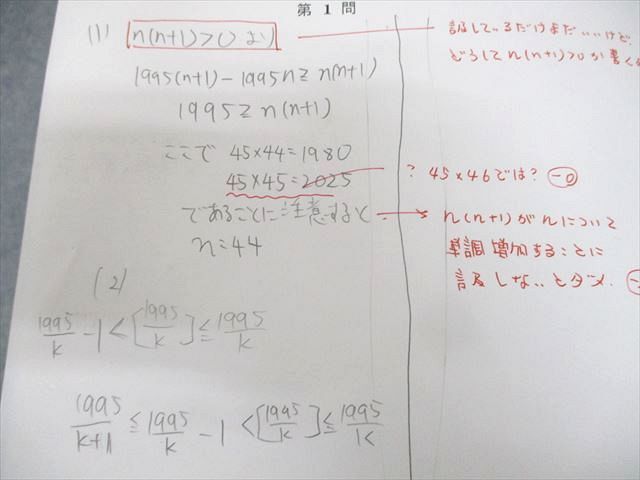 第 1 問
(1) n(n+1)>0 より
1995(n+1) - 1995n ≧ n(n+1)
1995 ≧ n(n+1)
ここで 45×44=1980
45×45=2025
であることに注意すると
n=44
(2)
1995/k - 1 < [1995/k] ≦ 1995/k
1995/(k+1) ≦ 1995/k - 1 < [1995/k] ≦ 1995/k
言及しているだけまだいいけど、
どうして n(n+1)>0 か書く
? 45×46では? -0
n(n+1)がnについて
単調増加することに
言及しないとダメ.